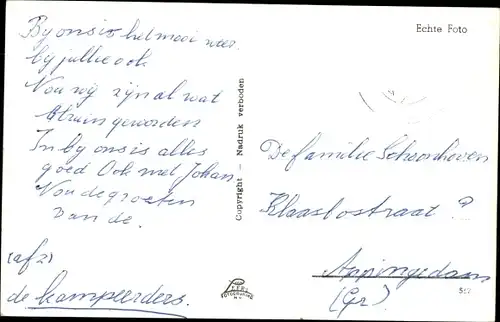 By ons is het mooi weer.
by jullie ook
Nou wij zijn al wat
bruin geworden
In by ons is alles
goed Ook met Johan.
Nou de groeten
van de.
(af2)
de kampeerders.
Copyright - Nadruk verboden
Echte Foto
De familie Schoonheven
Klaas straat ?
Appingedam
(Gr)